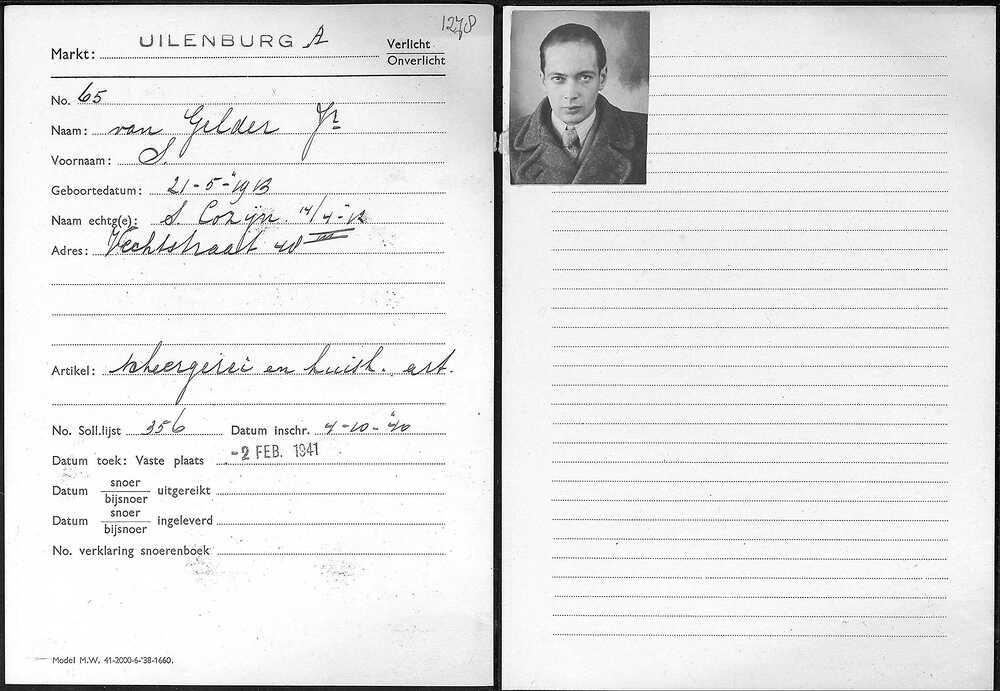 1278
Markt: UILENBURG A
Verlicht
Onverlicht
No. 65
Naam: van Gelder Jr
Voornaam: S.
Geboortedatum: 21-5-'1913
Naam echtg(e): S. Cozijn. 14/4-'12
Adres: Vechtstraat 40 III
Artikel: scheergerei en huish. art.
No. Soll.lijst 356 Datum inschr. 4-10-'40
Datum toek: Vaste plaats -2 FEB. 1941
Datum snoer/bijsnoer uitgereikt
Datum snoer/bijsnoer ingeleverd
No. verklaring snoerenboek
Model M.W. 41-2000-6-'38-1660.